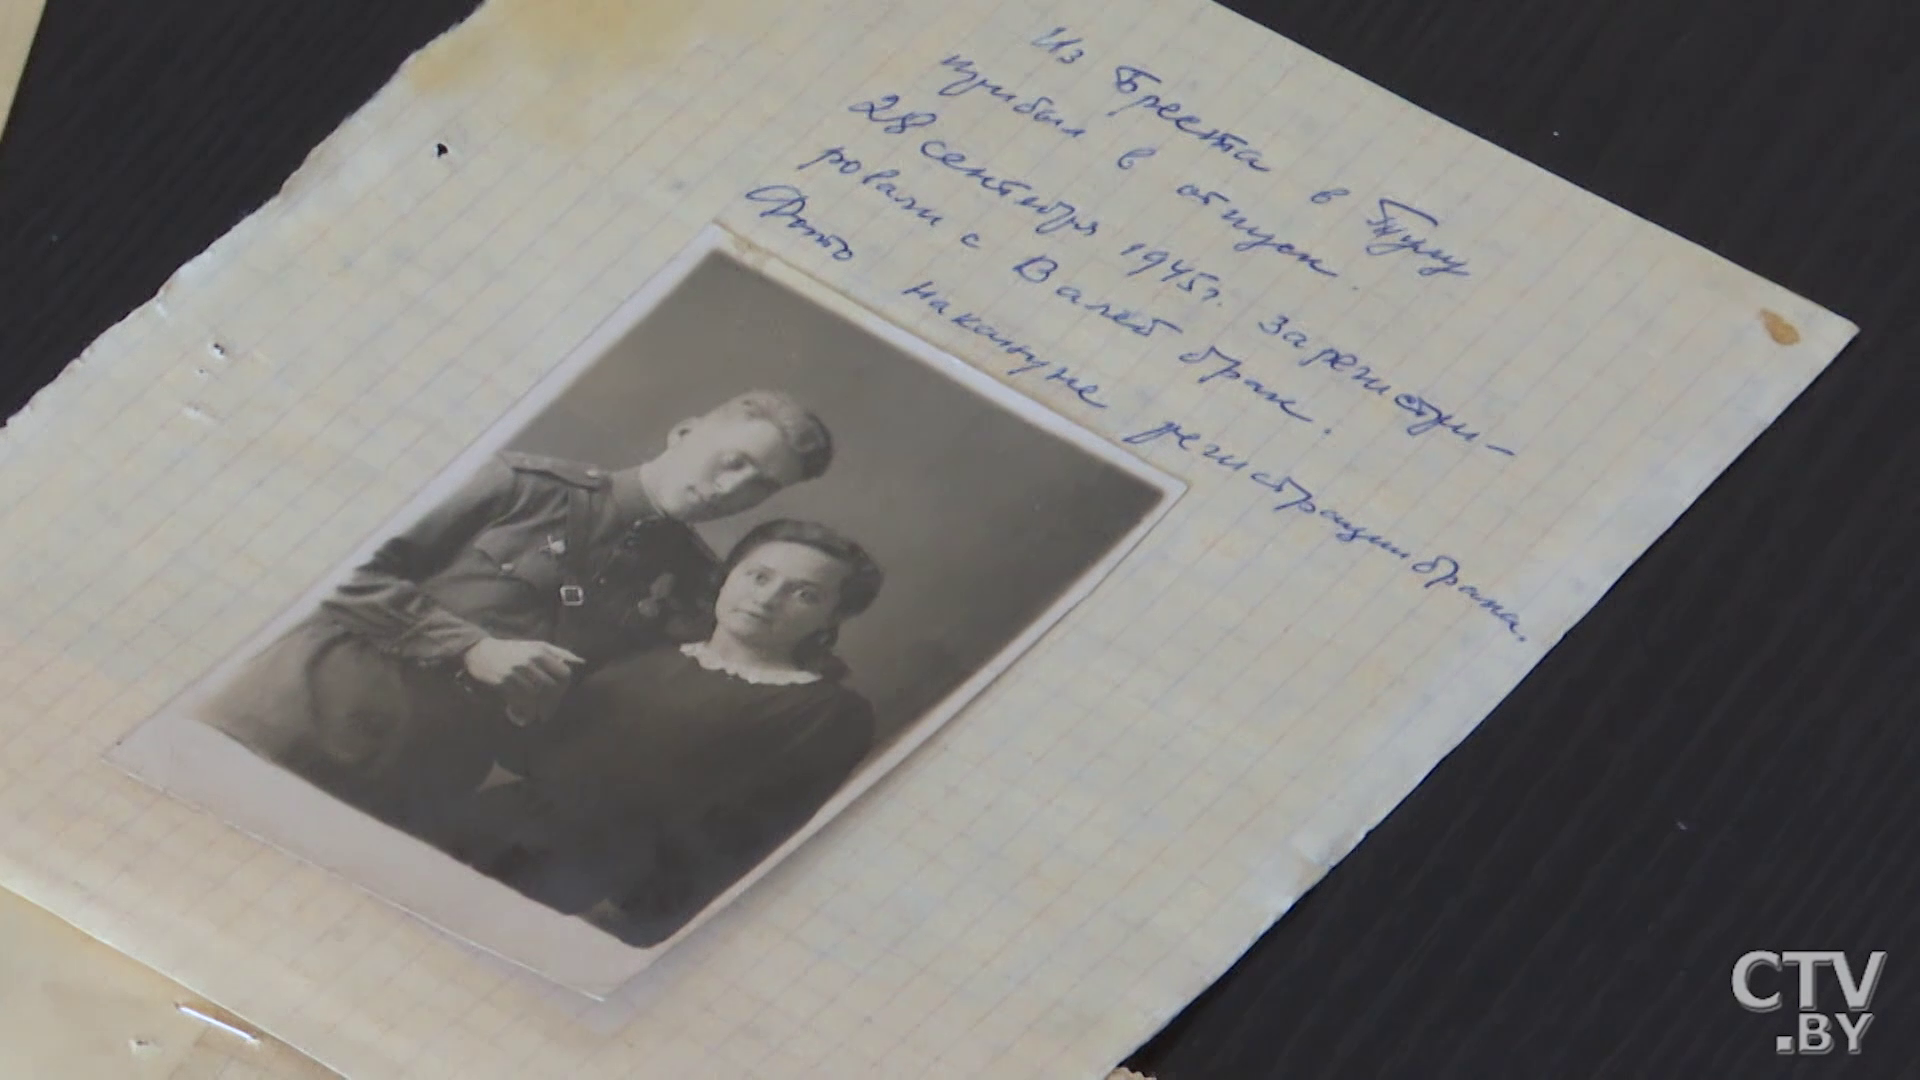 Из Бреста в Тулу
прибыл в отпуск.
28 сентября 1945г. зарегистри-
ровали с Валей брак.
Фото накануне регистрации брака.
CTV
.BY